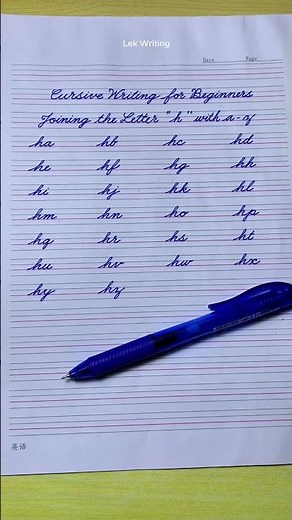 Lek Writing
Date Page
Cursive Writing for Beginners
Joining the Letter "h" with a-z
ha hb hc hd
he hf hg hh
hi hj hk hl
hm hn ho hp
hq hr hs ht
hu hv hw hx
hy hz
英语